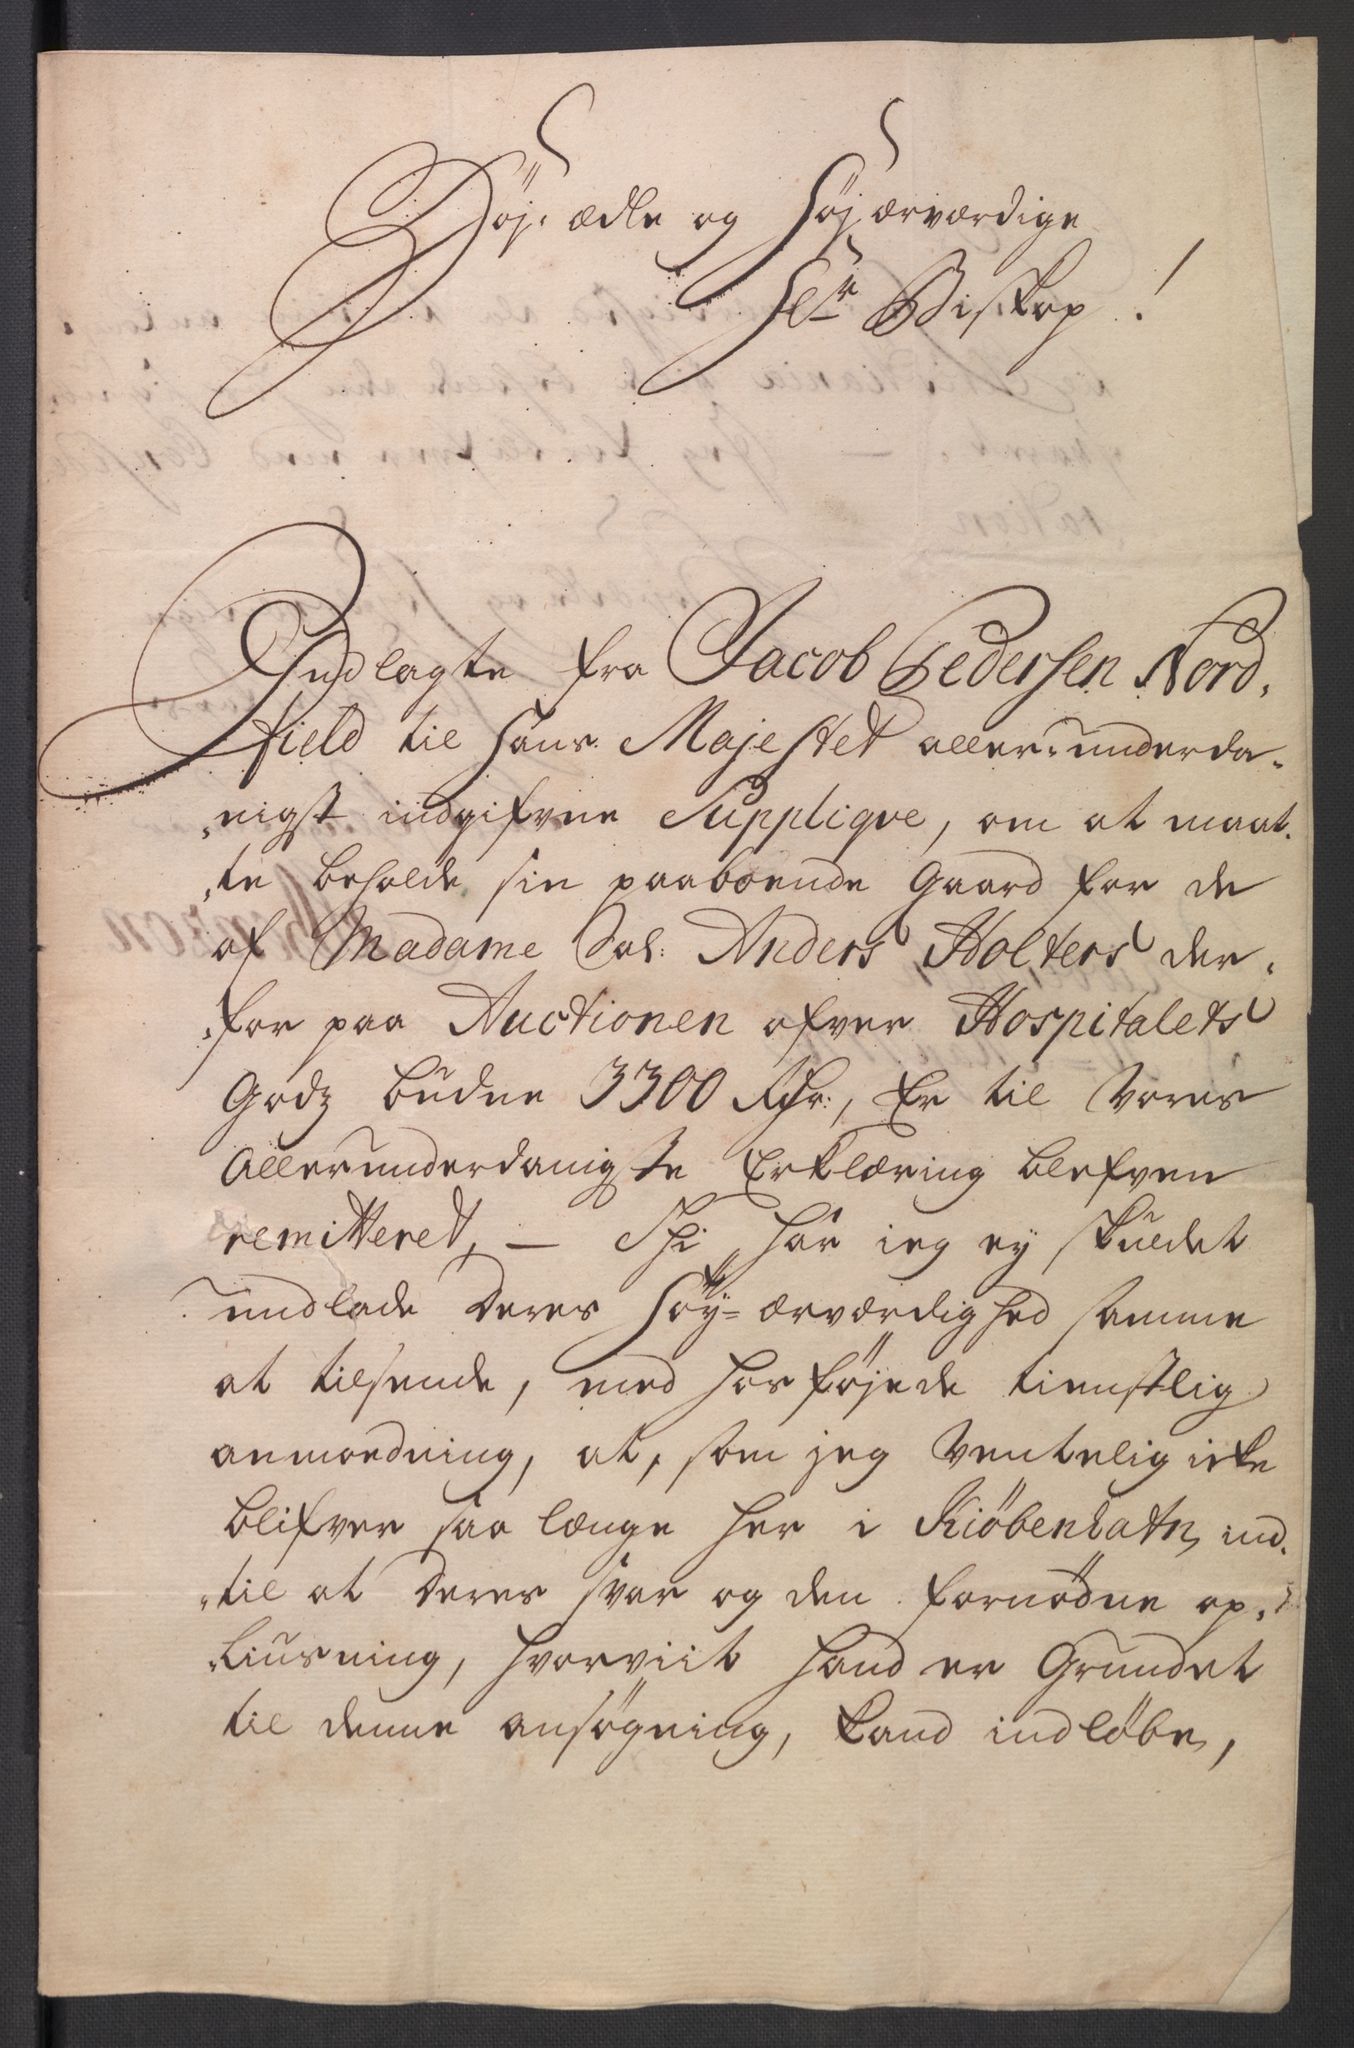 Høj-ædle og Højærværdige
Hr Biskop!
Indlagte fra Jacob Pedersen Nord-
field til Hans Majestet aller-underda-
nigst indgifvne Supplique, om at maat-
te beholde sin paaboende Gaard for de
af Madame Sal: Anders Holters der-
for paa Auctionen ofver Hospitalets
Godz budne 3300 Rdr:, Er til Vores
Allerunderdanigste Erklæring blefven
remitteret, — Thi har ieg ey skuldet
undlade Deres Høy-ærværdighed samme
at tilsende, med hosføjede tienstlig
anmodning, at, som jeg Ventelig icke
blifver saa længe her i Kiöbenhafn, ind-
til at Deres svar og den fornödne op-
liusning, hvorviit hand er Grundet
til denne ansögning, kand indløbe,